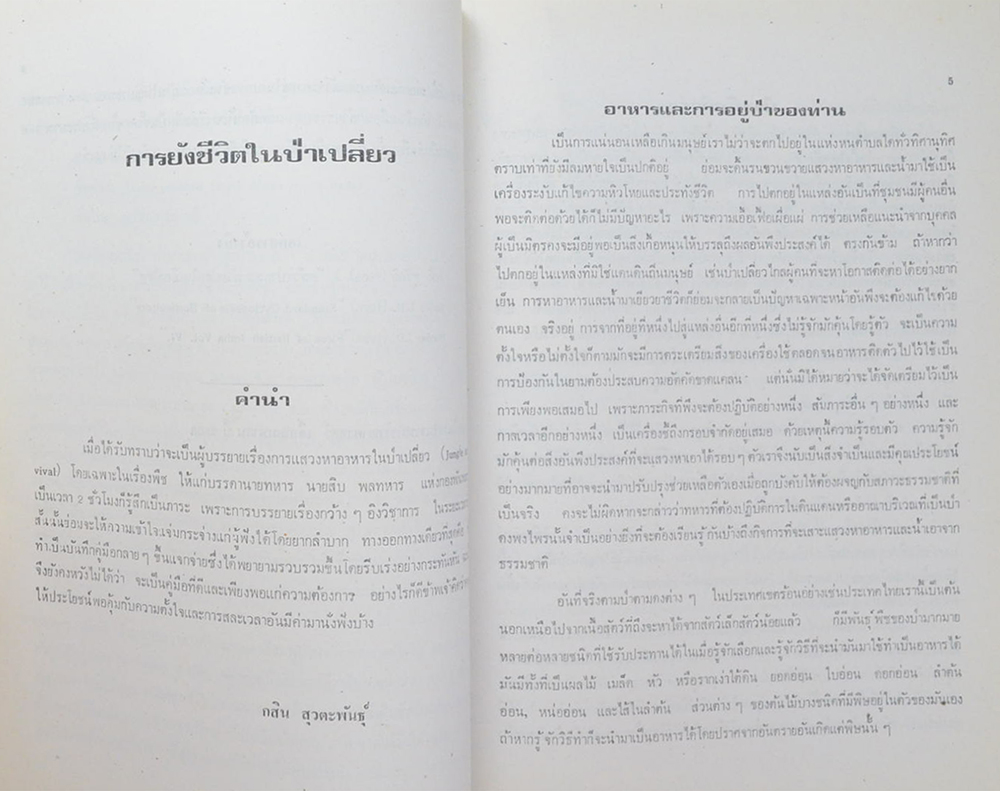 การยังชีวิตในป่าเปลี่ยว
คำนำ
เมื่อได้รับทราบว่าจะเป็นผู้บรรยายเรื่องการแสวงหาอาหารในป่าเปลี่ยว (Jungle
vival) โดยเฉพาะในเรื่องพืช ให้แก่บรรดานายทหาร นายสิบ พลทหาร แห่งกองพัน
เป็นเวลา 2 ชั่วโมงก็รู้สึกเป็นภาระ เพราะการบรรยายเรื่องกว้าง ๆ อิงวิชาการ ในระยะเวลา
สั้นนั้นร่อมจะให้ความเข้าใจแจ่มกระจ่างแก่ผู้ฟังได้โดยยากลำบาก ทางออกทางเดียวที่สุดคือ
ทำเป็นบันทึกคู่มือกลาย ๆ ขึ้นแจกจ่ายซึ่งได้พยายามรวบรวมขึ้นโดยรีบเร่งอย่างกระทันหัน
จึงยังคงหวังไม่ได้ว่า จะเป็นคู่มือที่ดีและเพียงพอแก่ความต้องการ อย่างไรก็ดีข้าพเจ้าคิดว่า
ให้ประโยชน์พอคุ้มกับความตั้งใจและการสละเวลาอันมีค่ามานั่งฟังบ้าง
กสิน สุวตะพันธุ์
5
อาหารและการอยู่ป่าของท่าน
เป็นการแน่นอนเหลือเกินมนุษย์เราไม่ว่าจะตกไปอยู่ในแห่งหนตำบลใดทั่วทิศานุทิศ
ตราบเท่าที่ยังมีลมหายใจเป็นปกติอยู่ ย่อมจะดิ้นรนขวนขวายแสวงหาอาหารและน้ำมาใช้เป็น
เครื่องระงับแก้ไขความหิวโหยและประทังชีวิต การไปตกอยู่ในแหล่งอันเป็นที่ชุมชนมีผู้คนอื่น
พอจะติดต่อด้วยได้ก็ไม่มีปัญหาอะไร เพราะความเอื้อเฟื้อเผื่อแผ่ การช่วยเหลือแนะนำจากบุคคล
ผู้เป็นมิตรคงจะมีอยู่พอเป็นสิ่งเกื้อหนุนให้บรรลุถึงผลอันพึงประสงค์ได้ ตรงกันข้าม ถ้าหากว่า
ไปตกอยู่ในแหล่งที่มิใช่แดนดินถิ่นมนุษย์ เช่นป่าเปลี่ยวไกลผู้คนที่จะหาโอกาสติดต่อได้อย่างยาก
เย็น การหาอาหารและน้ำมาเยียวยาชีวิตก็ย่อมจะกลายเป็นปัญหาเฉพาะหน้าอันพึงจะต้องแก้ไขด้วย
ตนเอง จริงอยู่ การจากที่อยู่ที่หนึ่งไปสู่แหล่งอื่นอีกที่หนึ่งซึ่งไม่รู้จักมักคุ้นโดยรู้ตัว จะเป็นความ
ตั้งใจหรือไม่ตั้งใจก็ตามมักจะมีการตระเตรียมสิ่งของเครื่องใช้ตลอดจนอาหารติดตัวไปไว้ใช้เป็น
การป้องกันในยามต้องประสบความอัตคัดขาดแคลน แต่นั่นมิได้หมายว่าจะได้จัดเตรียมไว้เป็น
การเพียงพอเสมอไป เพราะภาระกิจที่พึงจะต้องปฏิบัติอย่างหนึ่ง สัมภาระอื่น ๆ อย่างหนึ่ง และ
กาลเวลาอีกอย่างหนึ่ง เป็นเครื่องชี้ถึงกรอบจำกัดอยู่เสมอ ด้วยเหตุนี้ความรู้รอบตัว ความรู้จัก
มักคุ้นต่อสิ่งอันพึงประสงค์ที่จะแสวงหาเอาได้รอบๆ ตัวเราจึงนับเป็นสิ่งจำเป็นและมีคุณประโยชน์
อย่างมากมายที่อาจจะนำมาปรับปรุงช่วยเหลือตัวเองเมื่อถูกบังคับให้ต้องผจญกับสภาวะธรรมชาติที่
เป็นจริง คงจะไม่ผิดหากจะกล่าวว่าทหารที่ต้องปฏิบัติการในดินแดนหรืออาณาบริเวณที่เป็นป่า
ดงพงไพรนั้นจำเป็นอย่างยิ่งที่จะต้องเรียนรู้ กันบ้างถึงกิจการที่จะเสาะแสวงหาอาหารและน้ำเอาจาก
ธรรมชาติ
อันที่จริงตามป่าตามดงต่าง ๆ ในประเทศเขตร้อนอย่างเช่นประเทศไทยเรานี้เป็นต้น
นอกเหนือไปจากเนื้อสัตว์ที่ถึงจะหาได้จากสัตว์เล็กสัตว์น้อยแล้ว ก็มีพันธุ์พืชของป่ามากมาย
หลายต่อหลายชนิดที่ใช้รับประทานได้ในเมื่อรู้จักเลือกและรู้จักวิธีที่จะนำมันมาใช้ทำเป็นอาหารได้
มันมีทั้งที่เป็นผลไม้ เมล็ด หัว หรือรากเง่าใต้ดิน ยอดอ่อน ใบอ่อน ดอกอ่อน ลำต้น
อ่อน, หน่ออ่อน และไส้ในลำต้น ส่วนต่าง ๆ ของต้นไม้บางชนิดที่มีพิษอยู่ในตัวของมันเอง
ถ้าหากรู้จักวิธีทำก็จะนำมาเป็นอาหารได้โดยปราศจากอันตรายอันเกิดแต่พิษนั้น ๆ